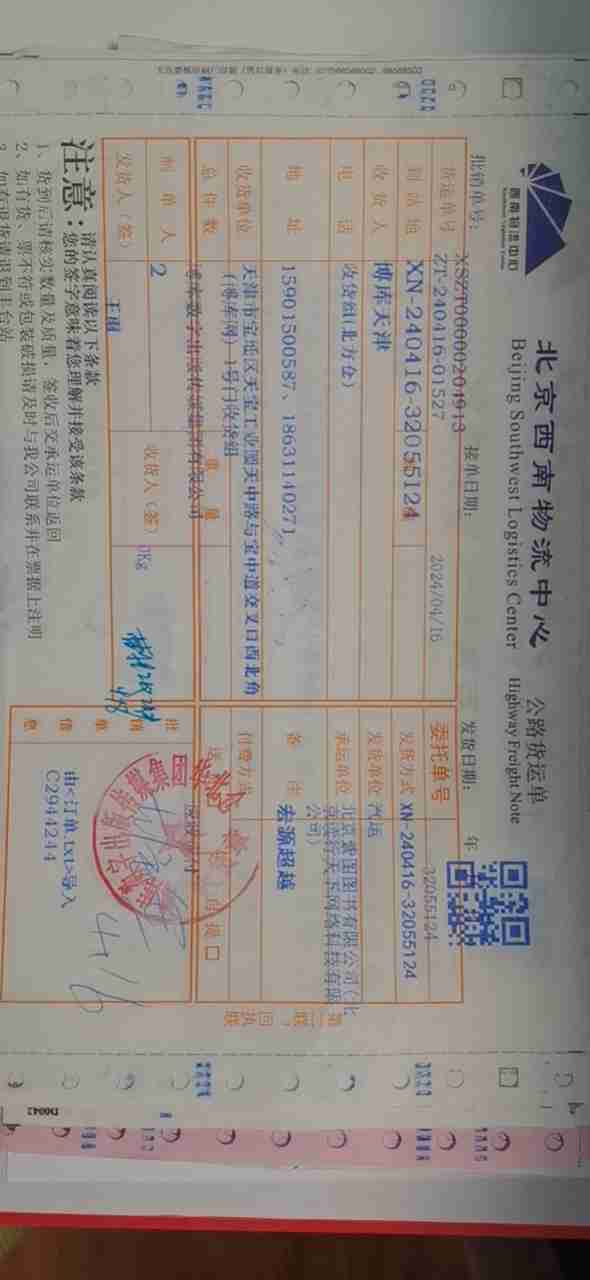 西南物流中心
Southwest Logistics Center
北京西南物流中心
公路货运单
Beijing Southwest Logistics Center
Highway Freight Note
批销单号:
XSZT0000204913
接单日期:
2024/04/16
发货日期:
年
货运单号
ZT-240416-01527
委托单号
32055124
到站地
XN-240416-32055124
发货方式
XN-240416-32055124
收货人
博库天津
发货单位
汽运
电话
收货组(北方仓)
承运单位
15901500587、18631140271
备注
宏源超越
地址
天津市宝坻区天宝工业园天中路与宝中道交叉口西北角
(博库网)1号门收货组
收货单位
付费方式
总件数
重量
2
0Kg
制单人
王雨
发货人(签)
收货人(签)
批销单信息
由<订单.txt>导入
C2944244
4/16
第二联:回执联
注意:
请认真阅读以下条款
您的签字意味着您理解并接受该条款
1、货到后请核实数量及质量,签收后交承运单位返回
2、如有货、票不符或包装破损请及时与我公司联系并在票据上注明
D0042